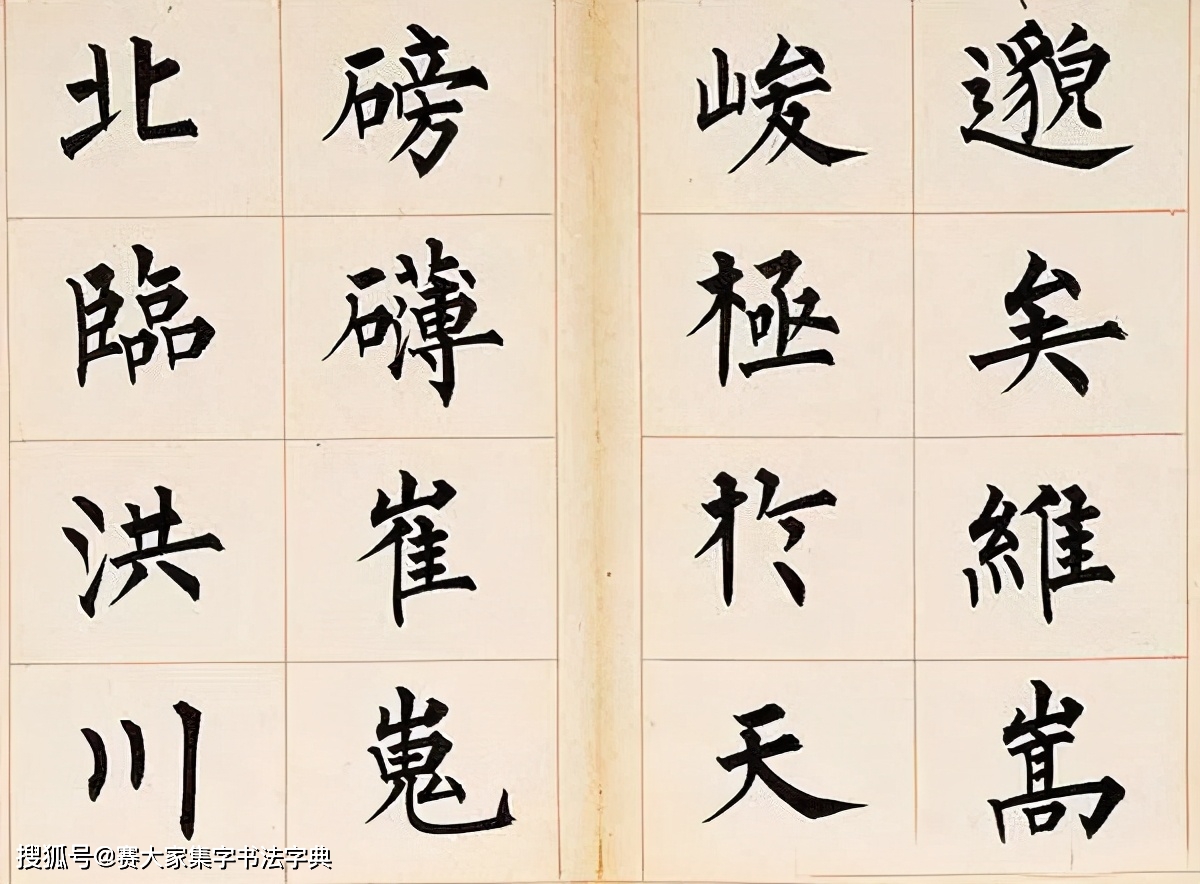 邈矣維嵩
峻極於天
磅礴崔嵬
北臨洪川
搜狐号@赛大家集字书法字典